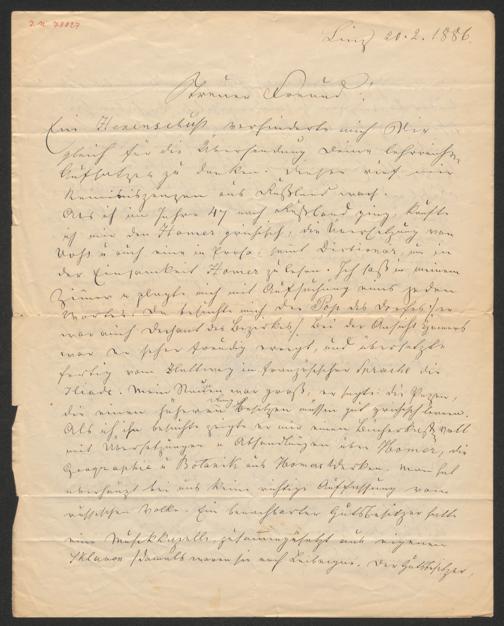 J.N. 78027
Linz 20.2.1886.
Treuer Freund!
Ein Hexenschuß verhinderte mich Dir
gleich für die Übersendung Deines lehrreichen
Aufsatzes zu danken. Dieser rief mir
Reminiszenzen aus Rußland wach.
Als ich im Jahre 47 nach Rußland ging, kaufte
ich mir den Homer griechisch, die Übersetzung von
Voß u auch eine in Prosa, samt Dictionär, um in
der Einsamkeit Homer zu lesen. Ich saß in meinem
Zimmer u plagte mich mit Aufsuchung eines jeden
Wortes. Da besuchte mich der Pop des Dorfes / er
war auch Dechant des Bezirkes /. Bei der Ansicht Homers
war er sehr freudig erregt, und übersetzte
fertig vom Blattweg in französischer Sprache die
Iliade. Mein Staunen war groß, er sagte: die Popen,
die einen höheren Rang besitzen müssen gut griechisch lernen.
Als ich ihn besuchte zeigte er mir einen Bücherkasten voll
mit Übersetzungen u Abhandlungen über Homer, die
Geographie u Botanik aus Homers Werken. Man hat
überhaupt bei uns keine richtige Auffassung vom
russischen Volke. Ein benachbarter Gutsbesitzer hatte
eine Musikkapelle, zusammengesetzt aus eigenen
Sklaven / damals waren sie noch Leibeigene. Der Gutsbesitzer,